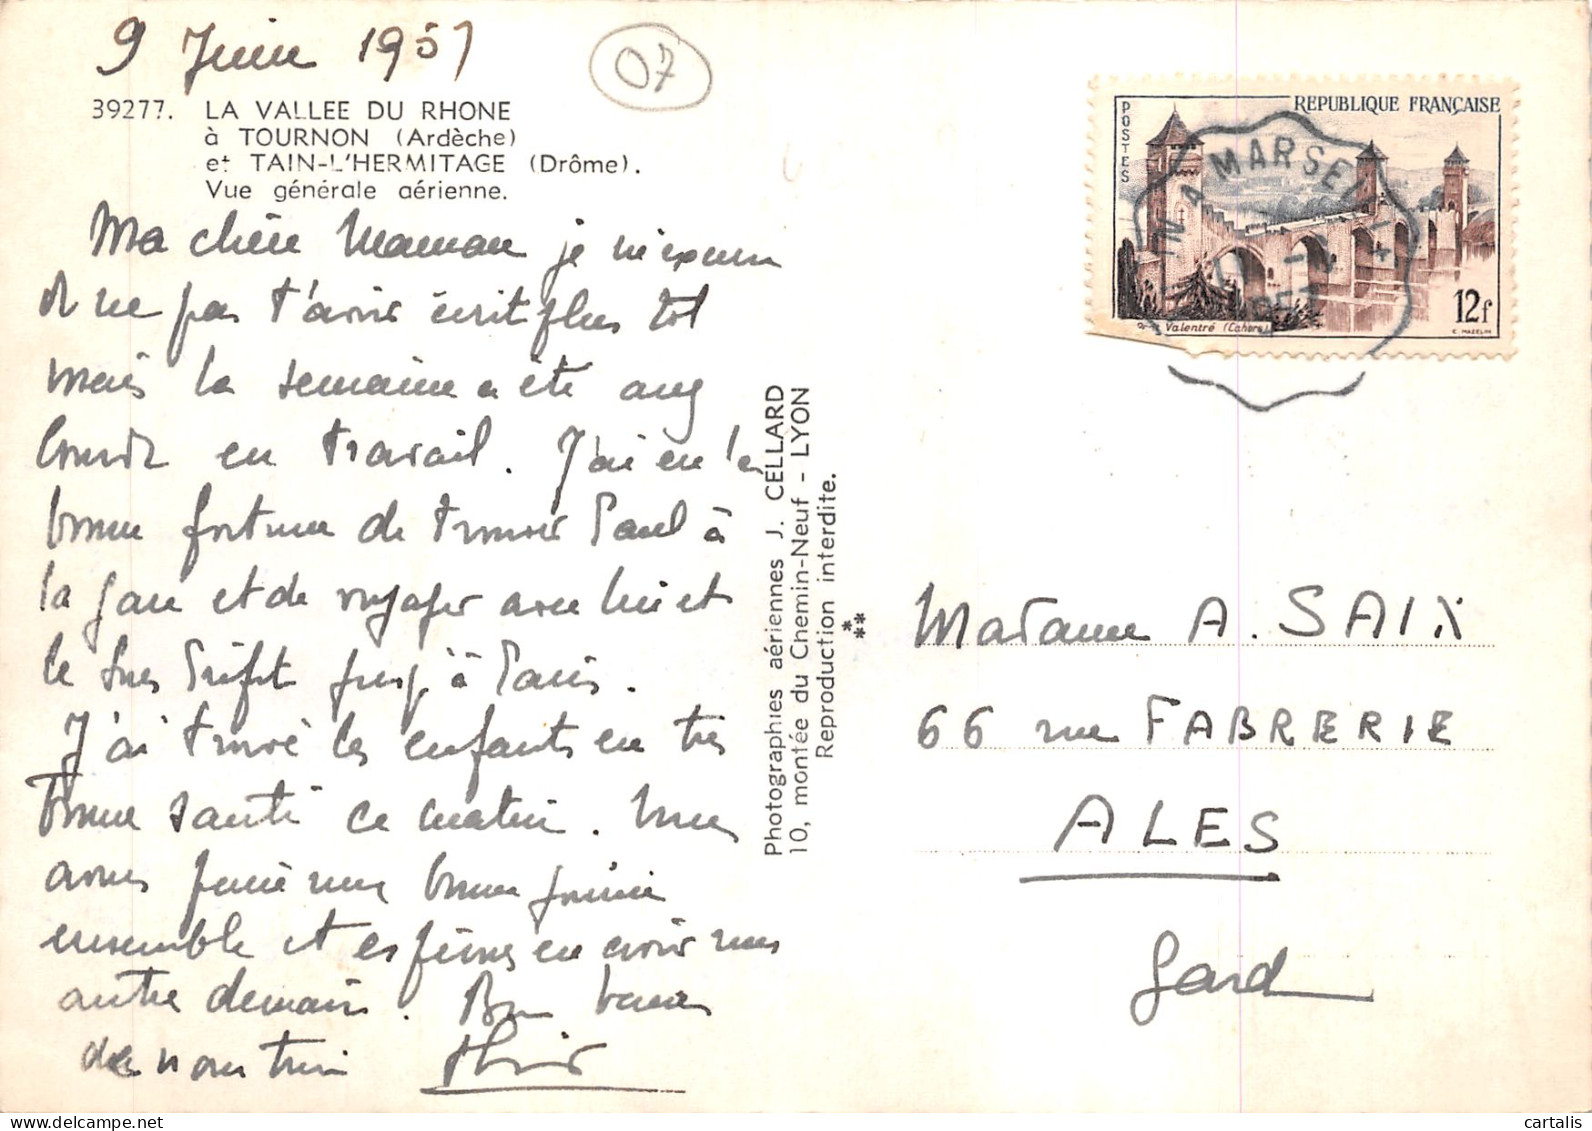 9 Juin 1957
07
39277. LA VALLEE DU RHONE
à TOURNON (Ardèche)
et TAIN-L'HERMITAGE (Drôme).
Vue générale aérienne.
Ma chère Maman je m'excuse
de ne pas t'avoir écrit plus tot
mais la semaine a été
lourde en travail. J'ai eu la
bonne fortune de trouver Paul à
la gare et de voyager avec lui et
le jusqu'à Paris.
J'ai trouvé les enfants en très
bonne santé ce matin. Nous
avons passé une bonne journée
ensemble et espérons en avoir une
autre demain. Bons baisers
de nous trois
Photographies aériennes J. CELLARD
10, montée du Chemin-Neuf - LYON
Reproduction interdite.
POSTES
REPUBLIQUE FRANÇAISE
12f
Valentré (Cahors)
C. MAZELIN
A MARSEI
Madame A. SAIX
66 rue FABRERIE
ALES
Gard
delcampe.net
cartalis